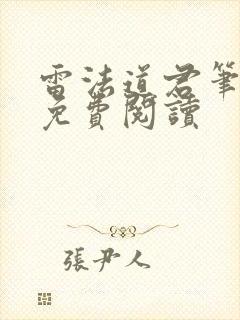 雷法道君筆
免費閱讀
張尹人